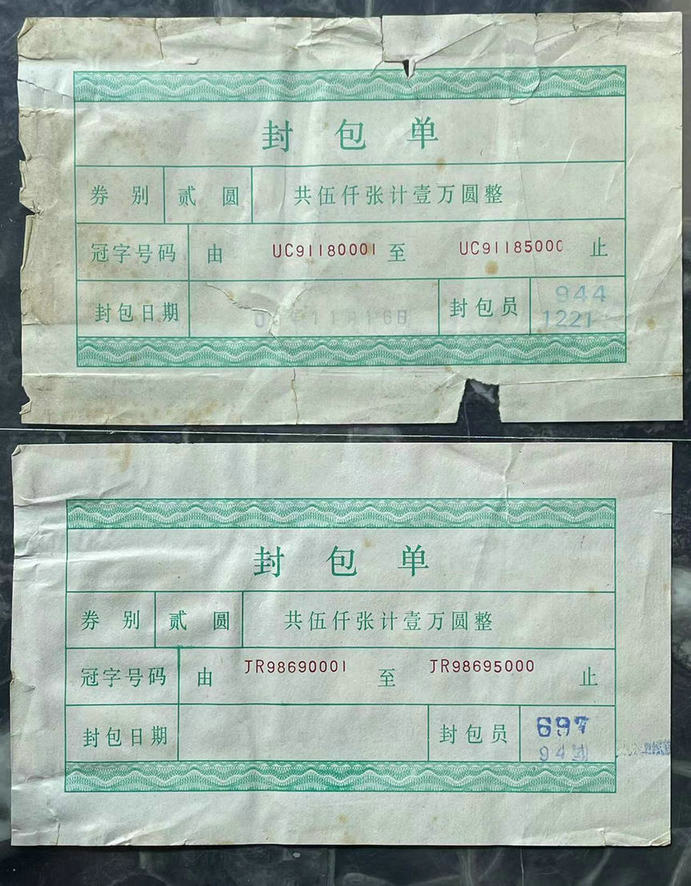 封包单
券别 贰圆 共伍仟张计壹万圆整
冠字号码 由 UC91180001 至 UC91185000 止
封包日期 年11月16日 封包员 944
1221
封包单
券别 贰圆 共伍仟张计壹万圆整
冠字号码 由 JR98690001 至 JR98695000 止
封包日期 封包员 697